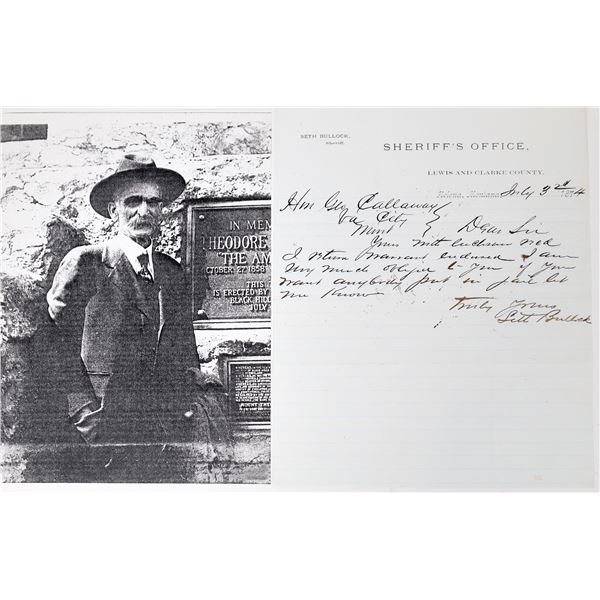 IN MEM
THEODORE
"THE AM
OCTOBER 27, 1858
THIS
IS ERECTED BY
BLACK HILL
JULY
SETH BULLOCK,
Sheriff.
SHERIFF'S OFFICE,
LEWIS AND CLARKE COUNTY.
Helena, Montana, July 3rd 1874
Hon Geo Callaway
Va City
Mont } Dear Sir
Yours with enclosure recd
I return Warrant endorsed I am
very much oblige to you if you
want anybody put in jail let
me know
Truly Yours
Seth Bullock